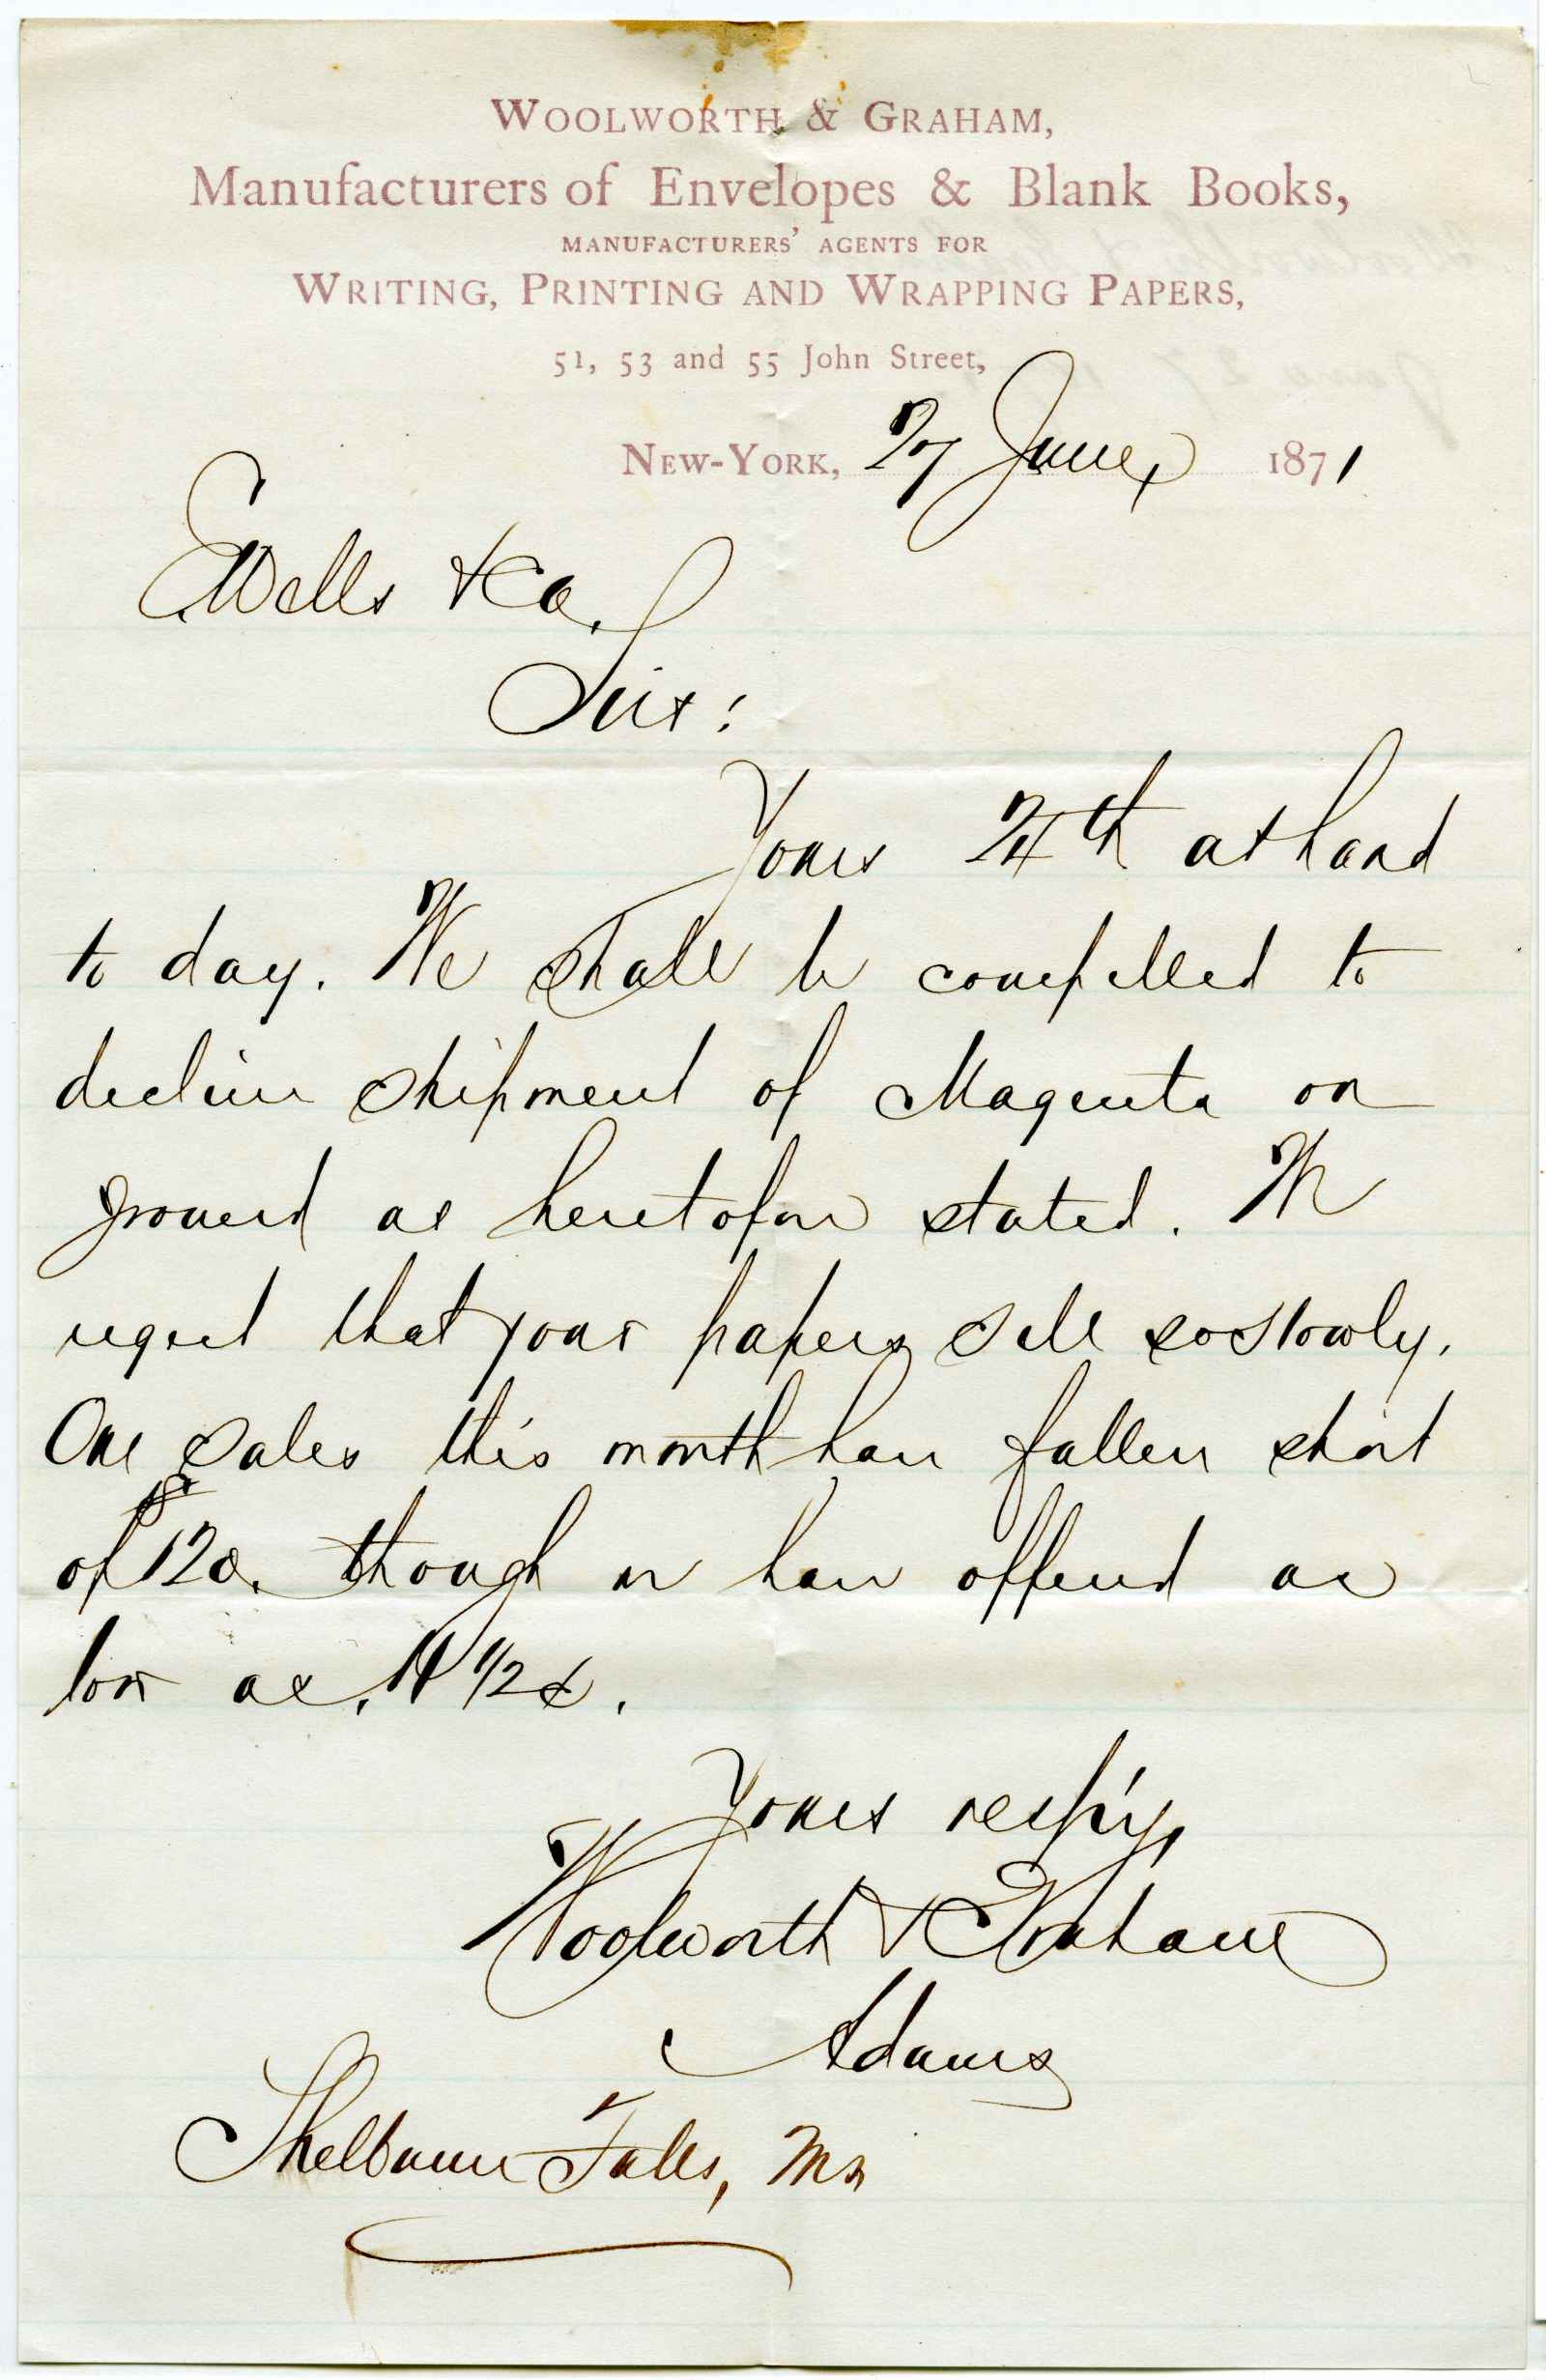 WOOLWORTH & GRAHAM,
Manufacturers of Envelopes & Blank Books,
MANUFACTURERS' AGENTS FOR
WRITING, PRINTING AND WRAPPING PAPERS,
51, 53 and 55 John Street,
NEW-YORK, 27 June, 1871
E Wells & Co.
Sirs:
Yours 24th at hand
to day. We shall be compelled to
decline shipment of Magenta on
ground as heretofore stated. We
regret that your papers sell so slowly.
Our sales this month have fallen short
of $120. though we have offered as
low as
Yours resp'y,
Woolworth & Graham
Adams
Shelburne Falls, Ms